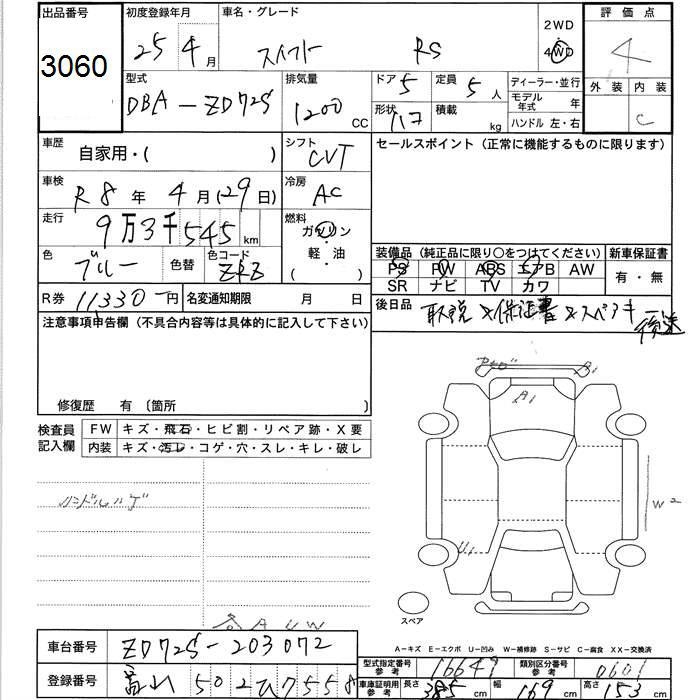 出品番号 初度登録年月 車名・グレード 2WD 評価点
3060 25年 4月 スイフト RS 4WD 4
型式 排気量 ドア 5 定員 5人 ディーラー・並行 外装 内装
DBA-ZD72S 1200cc 形状 ハコ 積載 kg モデル年式 年 C
ハンドル 左・右
車歴 自家用・( ) シフト CVT セールスポイント(正常に機能するものに限ります)
車検 R8年 4月(29日) 冷房 AC
走行 9万3千545km 燃料 ガソリン
軽・油
( )
色 ブルー 色替 色コード 装備品(純正品に限り○をつけてください) 新車保証書
PS PW ABS エアB AW 有・無
SR ナビ TV カワ
R券 11330円 名変通知期限 月 日 後日品 取説 保証書 スペアキー 後送
注意事項申告欄(不具合内容等は具体的に記入して下さい)
修復歴 有 〔箇所 〕
検査員記入欄 FW キズ・飛石・ヒビ割・リペア跡・X要
内装 キズ・汚レ・コゲ・穴・スレ・キレ・破レ
ハンドルハゲ
A1
A1
W2
U1
スペア
各AUW
A-キズ E-エクボ U-凹み W-補修跡 S-サビ C-腐食 XX-交換済
車台番号 ZD72S-203072
型式指定番号 参考 16649 類別区分番号 参考 0601
登録番号 富山 502 ひ 7558
車庫証明用 参考 長さ 385cm 幅 169cm 高さ 153cm